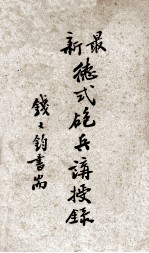 最新德式砲兵講授錄
錢大鈞書耑